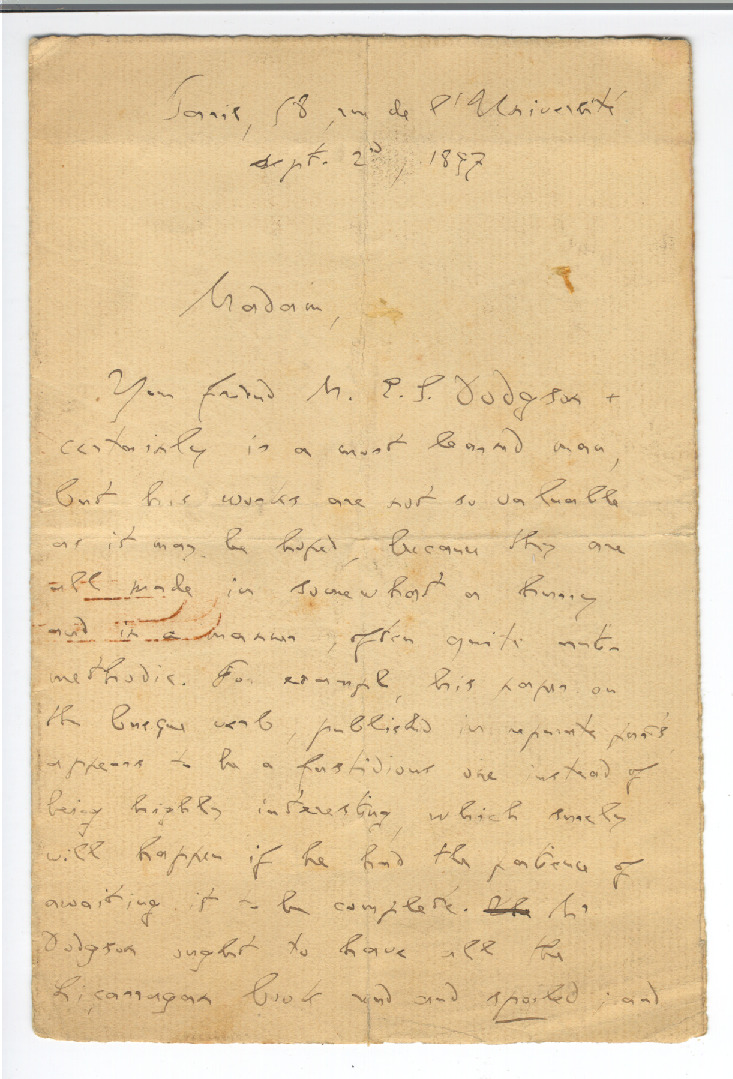 Paris, 58, rue de l'Université
sept. 2d, 1897
Madam,
Your friend M. E. S. Dodgson +
certainly is a most learned man,
but his works are not so valuable
as it may be hoped, because they are
all made in somewhat a hurry
and in a manner, often quite
methodic. For example, his paper on
the basque verb, published in separate parts
appears to be a fastidious one instead of
being highly interesting, which surely
will happen if he had the patience of
awaiting it to be complete. Mr
Dodgson ought to have all the
Liçarragan book and spoiled; and